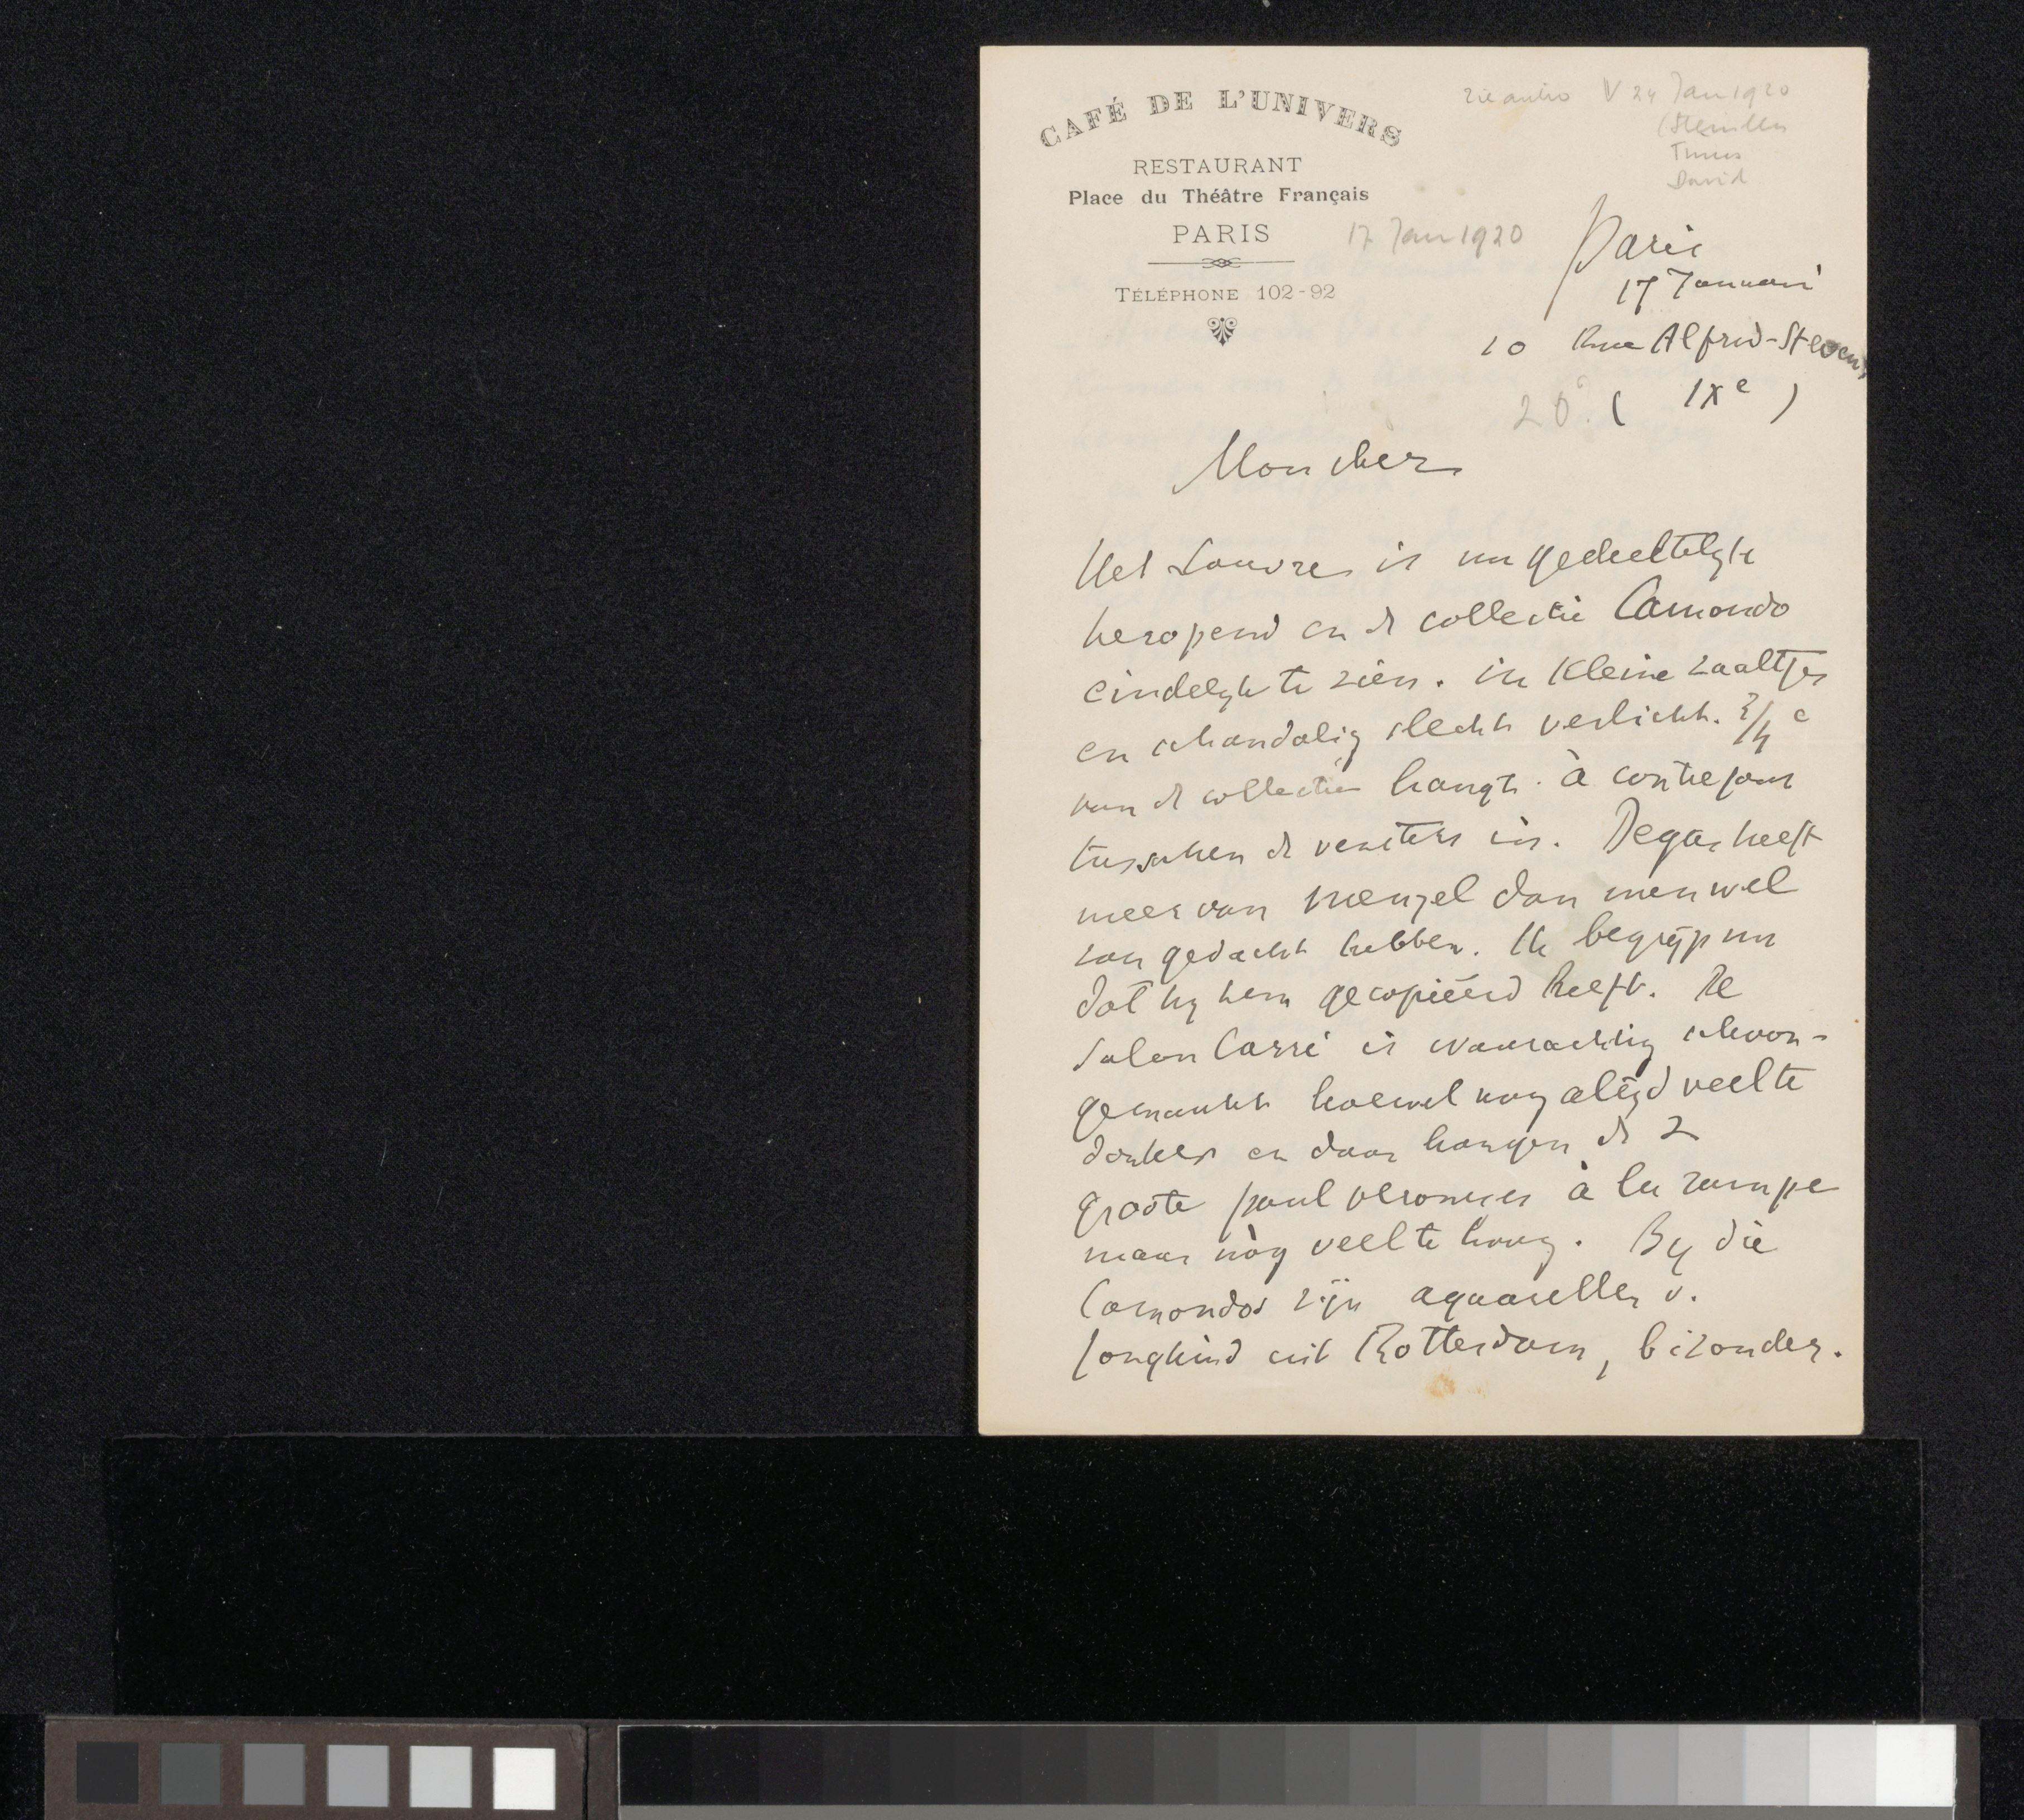 CAFÉ DE L'UNIVERS
RESTAURANT
Place du Théâtre Français
PARIS
TÉLÉPHONE 102-92
V 24 Jan 1920
David
17 Jan 1920
Paris
17 Januari
10 Rue Alfred-Stevens
20 ( IXe )
Mon cher
Het Louvre is nu gedeeltelyk
heropend en de collectie Camondo
eindelyk te zien. in kleine zaaltjes
en schandalig slecht verlicht. 3/4 e
van de collectie hangt à contrejour
tusschen de vensters in. Degas heeft
meer van Menzel dan men wel
zou gedacht hebben. Ik begrijp nu
dat hy hem gecopiëerd heeft. De
Salon Carré is waarachtig schoon-
gemaakt hoewel nog altijd veel te
donker en daar hangen de 2
groote paul veroneses à la rampe
maar nòg veel te hoog. By die
Camondos zijn aquarellen v.
Jongkind uit Rotterdam, bizonder.